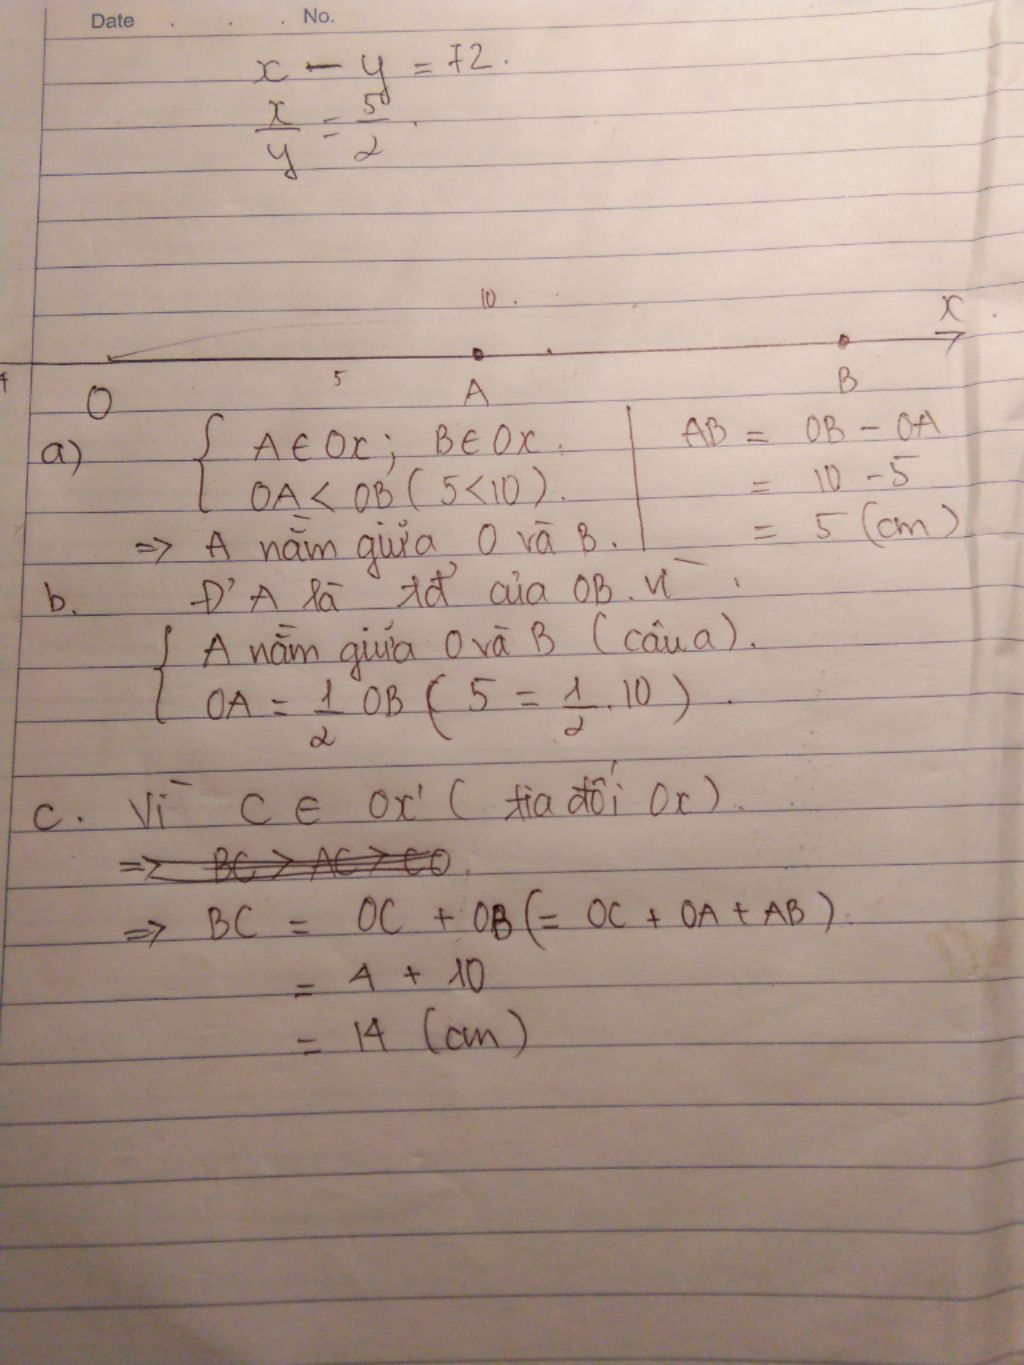 Date . . . No.
x - y = 72.
x/y = 5/2.
10.
x
O 5 A B
a) { A ∈ Ox; B ∈ Ox. | AB = OB - OA
OA < OB (5 < 10). | = 10 - 5
=> A nằm giữa O và B. | = 5 (cm)
b. Đ' A là tđ' của OB. Vì
{ A nằm giữa O và B (câu a).
OA = 1/2 OB (5 = 1/2 . 10).
c. Vì C ∈ Ox' (tia đối Ox).
=> BC > AC > CO.
=> BC = OC + OB (= OC + OA + AB).
= 4 + 10
= 14 (cm)